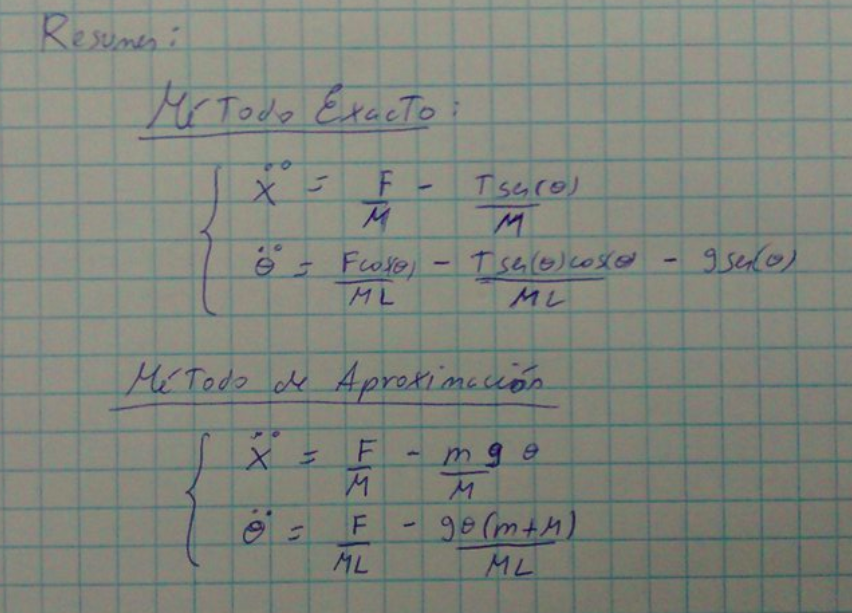 Resumen:
Método Exacto:
ẍ = F/M - T sen(θ)/M
θ̈ = F cos(θ)/ML - T sen(θ) cos(θ/ML - g sen(θ)
Método de Aproximación
ẍ = F/M - m/M g θ
θ̈ = F/ML - gθ(m+M)/ML